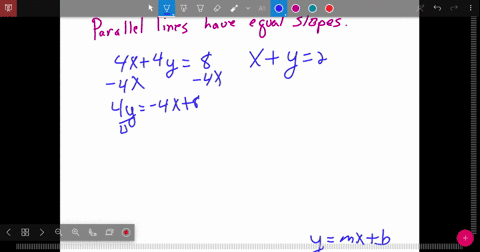 Parallel lines have equal slopes.
4x+4y = 8 x+y=2
-4x -4x
4y=-4x+8
4
y=mx+b